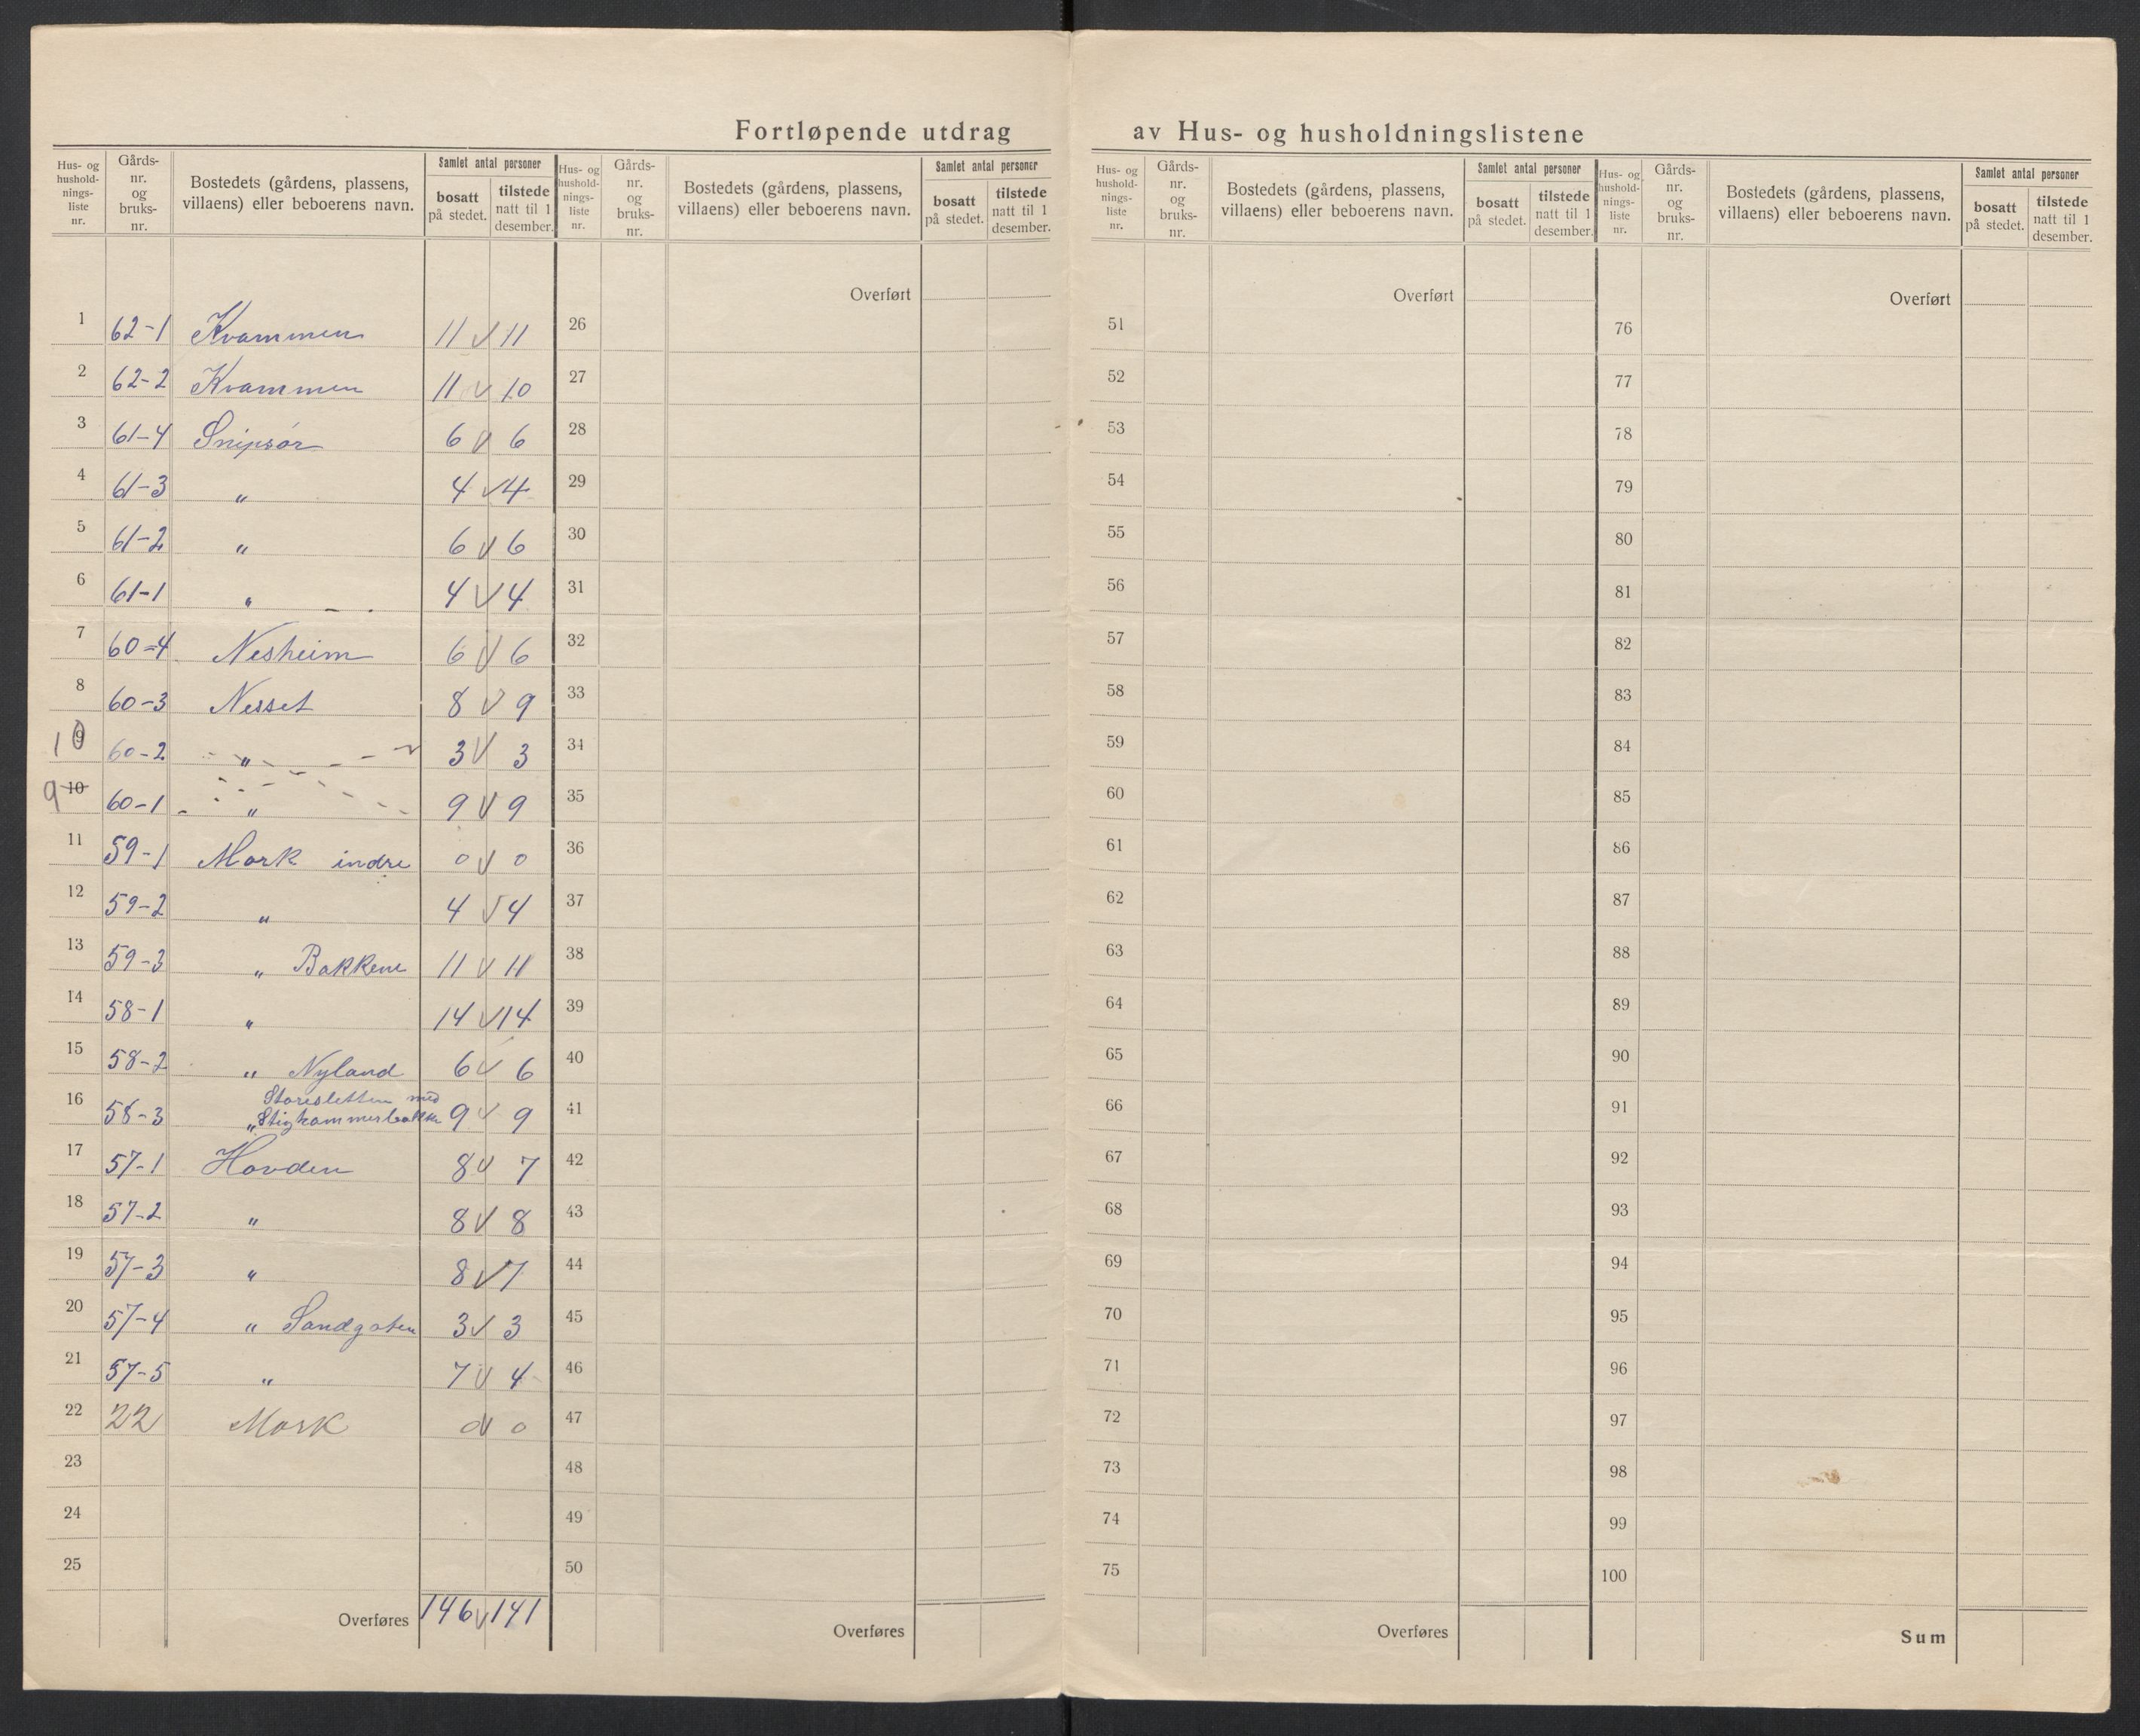 Fortløpende utdrag av Hus- og husholdningslistene
Hus- og hushold-nings-liste nr. | Gårds-nr. og bruks-nr. | Bostedets (gårdens, plassens, villaens) eller beboerens navn. | Samlet antal personer | bosatt på stedet. | tilstede natt til 1 desember.
1 62-1 Kvammen 11 √ 11
2 62-2 Kvammen 11 √ 10
3 61-4 Snipsør 6 √ 6
4 61-3 " 4 √ 4
5 61-2 " 6 √ 6
6 61-1 " 4 √ 4
7 60-4 Nesheim 6 √ 6
8 60-3 Nesset 8 √ 9
10 60-2 " 3 √ 3
9 10 60-1 " 9 √ 9
11 59-1 Mork indre 0 √ 0
12 59-2 " 4 √ 4
13 59-3 " Bakkene 11 √ 11
14 58-1 " 14 √ 14
15 58-2 " Nyland 6 √ 6
16 58-3 Storesletten med
" Stighammerbakke 9 √ 9
17 57-1 Hovden 8 √ 7
18 57-2 " 8 √ 8
19 57-3 " 8 √ 7
20 57-4 " Sandgaten 3 √ 3
21 57-5 " 7 √ 4
22 22 Mork 0 √ 0
23
24
25
Overføres 146 √ 141
Hus- og hushold-nings-liste nr. | Gårds-nr. og bruks-nr. | Bostedets (gårdens, plassens, villaens) eller beboerens navn. | Samlet antal personer | bosatt på stedet. | tilstede natt til 1 desember.
Overført
26
27
28
29
30
31
32
33
34
35
36
37
38
39
40
41
42
43
44
45
46
47
48
49
50
Overføres
Hus- og hushold-nings-liste nr. | Gårds-nr. og bruks-nr. | Bostedets (gårdens, plassens, villaens) eller beboerens navn. | Samlet antal personer | bosatt på stedet. | tilstede natt til 1 desember.
Overført
51
52
53
54
55
56
57
58
59
60
61
62
63
64
65
66
67
68
69
70
71
72
73
74
75
Overføres
Hus- og hushold-nings-liste nr. | Gårds-nr. og bruks-nr. | Bostedets (gårdens, plassens, villaens) eller beboerens navn. | Samlet antal personer | bosatt på stedet. | tilstede natt til 1 desember.
Overført
76
77
78
79
80
81
82
83
84
85
86
87
88
89
90
91
92
93
94
95
96
97
98
99
100
Sum